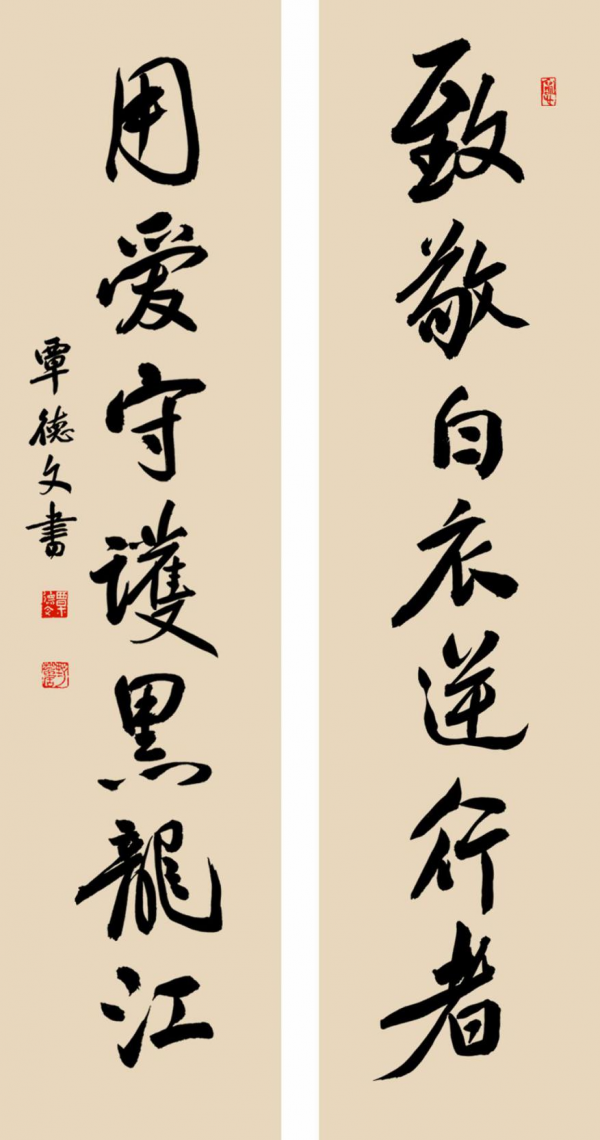 致敬白衣逆行者
用爱守護黑龍江
覃德文書